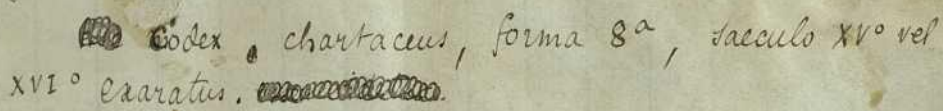 Codex, chartaceus, forma 8ᵃ, saeculo XVº vel
XVIº exaratus.